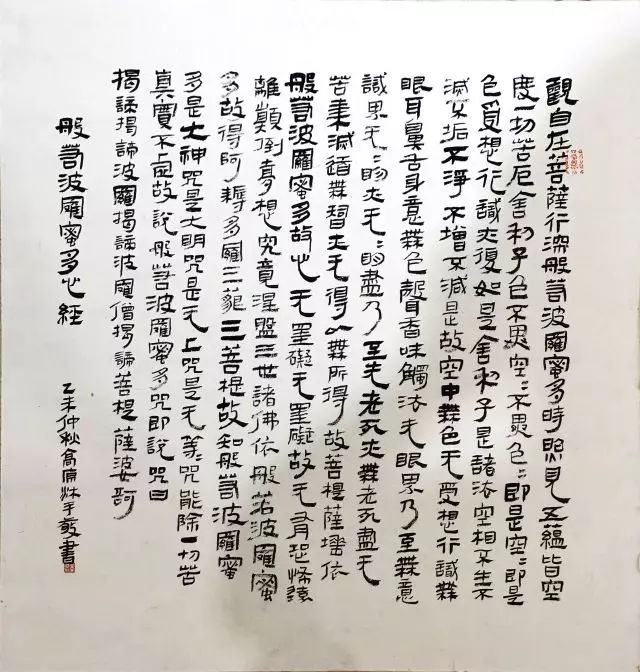 觀自在菩薩行深般若波羅蜜多時照見五蘊皆空
度一切苦厄舍利子色不異空〻不異色〻即是空〻即是
色受想行識亦復如是舍利子是諸法空相不生不
滅不垢不淨不增不減是故空中無色无受想行識無
眼耳鼻舌身意無色聲香味觸法无眼界乃至無意
識界无〻明亦无〻明盡乃至无老死亦無老死盡无
苦集滅道無智亦无得以無所得故菩提薩埵依
般若波羅蜜多故心无罣礙无罣礙故无有恐怖遠
離顛倒夢想究竟涅盤三世諸佛依般若波羅蜜
多故得阿耨多羅三藐三菩提故知般若波羅蜜
多是大神咒是大明咒是无上咒是无等〻咒能除一切苦
真實不虛故說般若波羅蜜多咒即說咒曰
揭諦揭諦波羅揭諦波羅僧揭諦菩提薩婆訶
般若波羅蜜多心經
乙未仲秋高 敬書